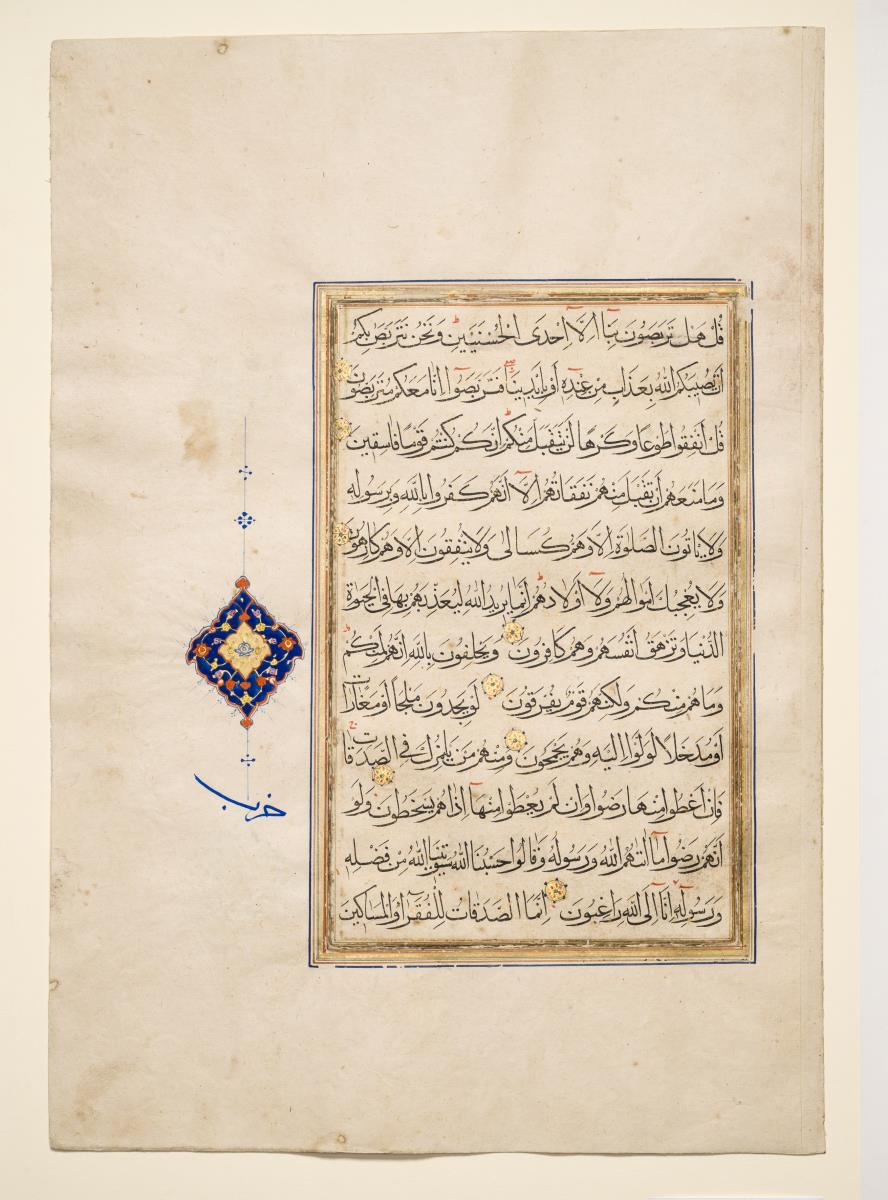 قُلْ هَلْ تَرَبَّصُونَ بِنَآ اِلَّآ اِحْدَى الْحُسْنَيَيْنِ وَنَحْنُ نَتَرَبَّصُ بِكُمْ
اَنْ يُصِيبَكُمُ اللهُ بِعَذَابٍ مِنْ عِنْدِهِ اَوْ بِاَيْدِينَا فَتَرَبَّصُوآ اِنَّا مَعَكُمْ مُتَرَبِّصُونَ
قُلْ اَنْفِقُوا طَوْعًا وَكَرْهًا لَنْ يُتَقَبَّلَ مِنْكُمْ اِنَّكُمْ كُنْتُمْ قَوْمًا فَاسِقِينَ
وَمَا مَنَعَهُمْ اَنْ تُقْبَلَ مِنْهُمْ نَفَقَاتُهُمْ اِلَّآ اَنَّهُمْ كَفَرُوا بِاللهِ وَبِرَسُولِهِ
وَلَا يَاْتُونَ الصَّلٰوةَ اِلَّا وَهُمْ كُسَالٰى وَلَا يُنْفِقُونَ اِلَّا وَهُمْ كَارِهُونَ
وَلَا يُعْجِبْكَ اَمْوَالُهُمْ وَلَآ اَوْلَادُهُمْ اِنَّمَا يُرِيدُ اللهُ لِيُعَذِّبَهُمْ بِهَا فِى الْحَيٰوةِ
الدُّنْيَا وَتَزْهَقَ اَنْفُسُهُمْ وَهُمْ كَافِرُونَ وَيَحْلِفُونَ بِاللهِ اِنَّهُمْ لَمِنْكُمْ
وَمَا هُمْ مِنْكُمْ وَلٰكِنَّهُمْ قَوْمٌ يَفْرَقُونَ لَوْ يَجِدُونَ مَلْجَاً اَوْ مَغَارَاتٍ
اَوْ مُدَّخَلًا لَوَلَّوْا اِلَيْهِ وَهُمْ يَجْمَحُونَ وَمِنْهُمْ مَنْ يَلْمِزُكَ فِى الصَّدَقَاتِ
فَاِنْ اُعْطُوا مِنْهَا رَضُوا وَاِنْ لَمْ يُعْطَوْا مِنْهَآ اِذَا هُمْ يَسْخَطُونَ وَلَوْ
اَنَّهُمْ رَضُوا مَآ اٰتٰهُمُ اللهُ وَرَسُولُهُ وَقَالُوا حَسْبُنَا اللهُ سَيُؤْتِينَا اللهُ مِنْ فَضْلِهِ
وَرَسُولُهُ اِنَّآ اِلَى اللهِ رَاغِبُونَ اِنَّمَا الصَّدَقَاتُ لِلْفُقَرَآءِ وَالْمَسَاكِينِ
حزب